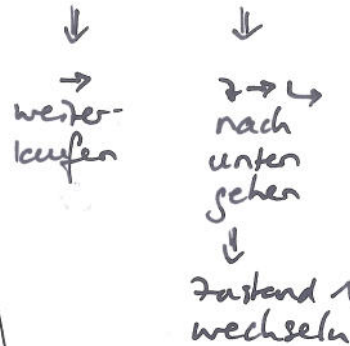 weiter-
laufen
nach
unten
gehen
Zustand 1
wechseln